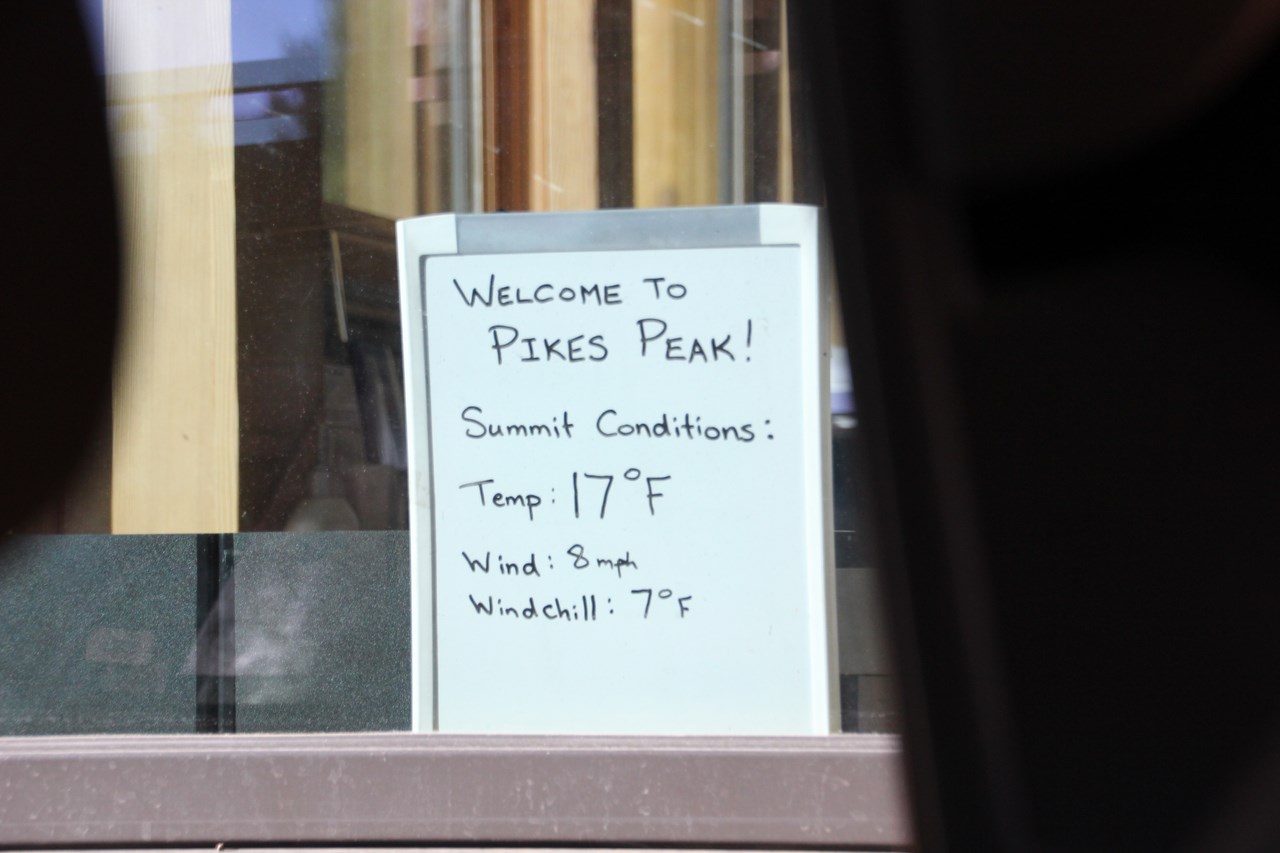 WELCOME TO
PIKES PEAK!
Summit Conditions:
Temp: 17°F
Wind: 8 mph
Windchill: 7°F